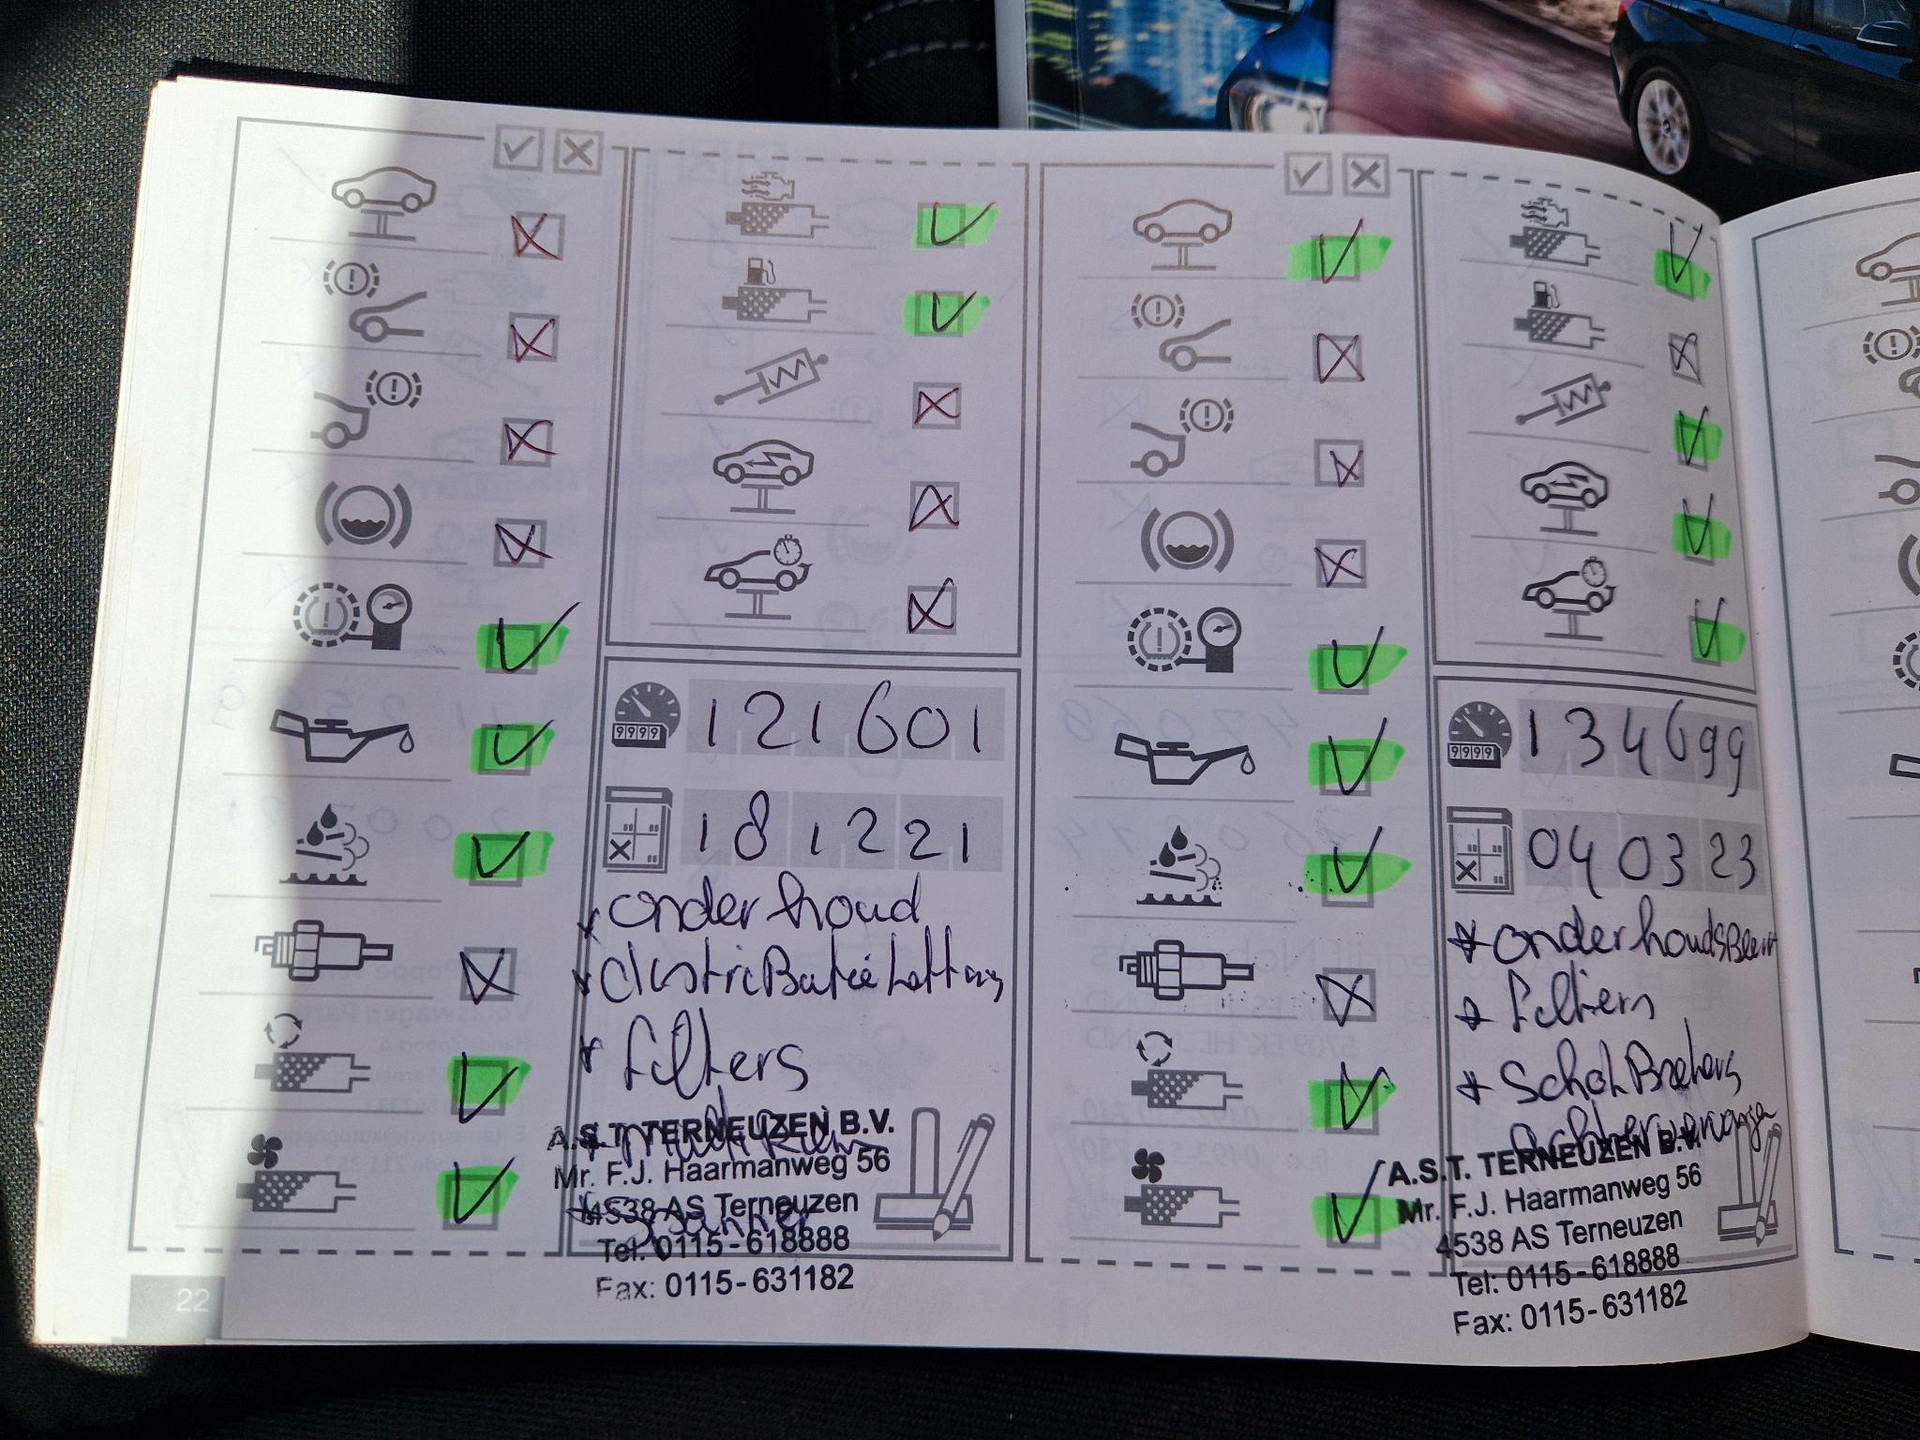 121601
181221
onderhoud
distriBatie ketting
filters
A.S.T. TERNEUZEN B.V.
Mr. F.J. Haarmanweg 56
4538 AS Terneuzen
Tel: 0115-618888
Fax: 0115-631182
22
134699
040323
* onderhoudsBeurt
* filters
* SchokBrekers
A.S.T. TERNEUZEN B.V.
Mr. F.J. Haarmanweg 56
4538 AS Terneuzen
Tel: 0115-618888
Fax: 0115-631182